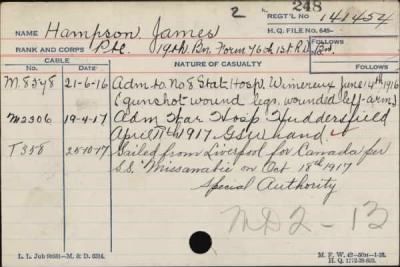 2 248
REGT'L NO 141454
NAME Hampson James
H. Q. FILE NO. 649-
RANK AND CORPS Pte. 19th Bn. Form 76th 1st R.D. Bn.
FOLLOWS
CABLE
NO. DATE NATURE OF CASUALTY FOLLOWS
M.8548 21-6-16 Adm to No 8 Stat. Hosp. Wimereux June 14th 1916
(Gunshot wound legs, wounded left arm)
M2306 19-4-17 Adm War Hosp Huddersfield
April 11th 1917 GSW hand.
T358 25-10-17 Sailed from Liverpool for Canada per
S.S. "Missanabie" on Oct 18th 1917
Special Authority
MD 2-13
L. L. Job 90891-M. & D. 6354.
M. F. W. 42-50M-1-18.
H. Q. 1772-39-893.